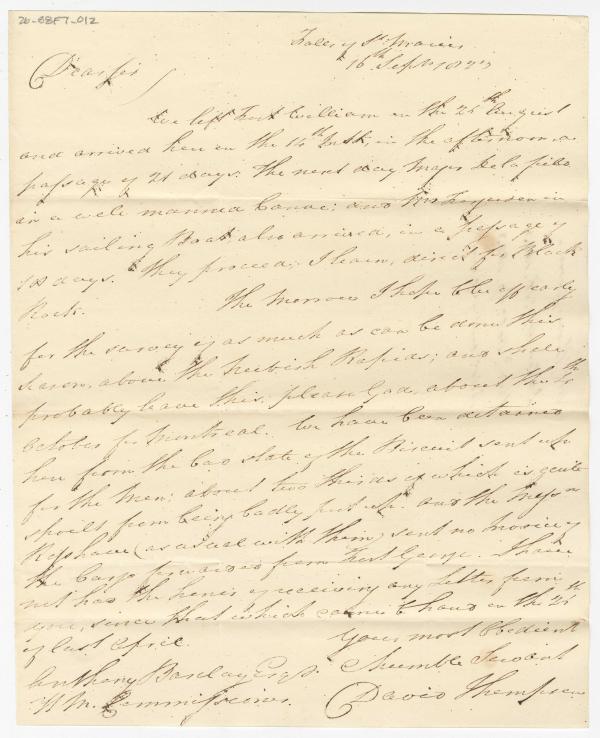 26-B8F7-012
Falls of St. Maries
16th Septr 1823
Dear Sir
We left Fort William on the 24th August
and arrived here on the 14th Inst, in the afternoon, a
passage of 21 days. The next day Major Delafield
in a well manned Canoe; and Mr Ferguson in
his sailing Boat, also arrived, in a passage of
18 days. They proceed, I learn, direct for Black
Rock.
The Morrow I hope to be off early
for the survey of as much as can be done this
season, above the Neebish Rapids; and shall
probably leave this, please God, about the
October for Montreal. We have been detained
here from the bad state of the Biscuit sent up
for the Men: about two thirds of which is quite
spoilt from being badly put up. and the Messrs
(as usual with them) sent no Invoice of
the Cargo forwarded from Fort George. I have
not had the honor of receiving any Letter from
you, since that which came to hand on the 25th
of last April.
Your most Obedient
Anthony Barclay Esqr. & humble Servant
H M. Commissioner. David Thompson